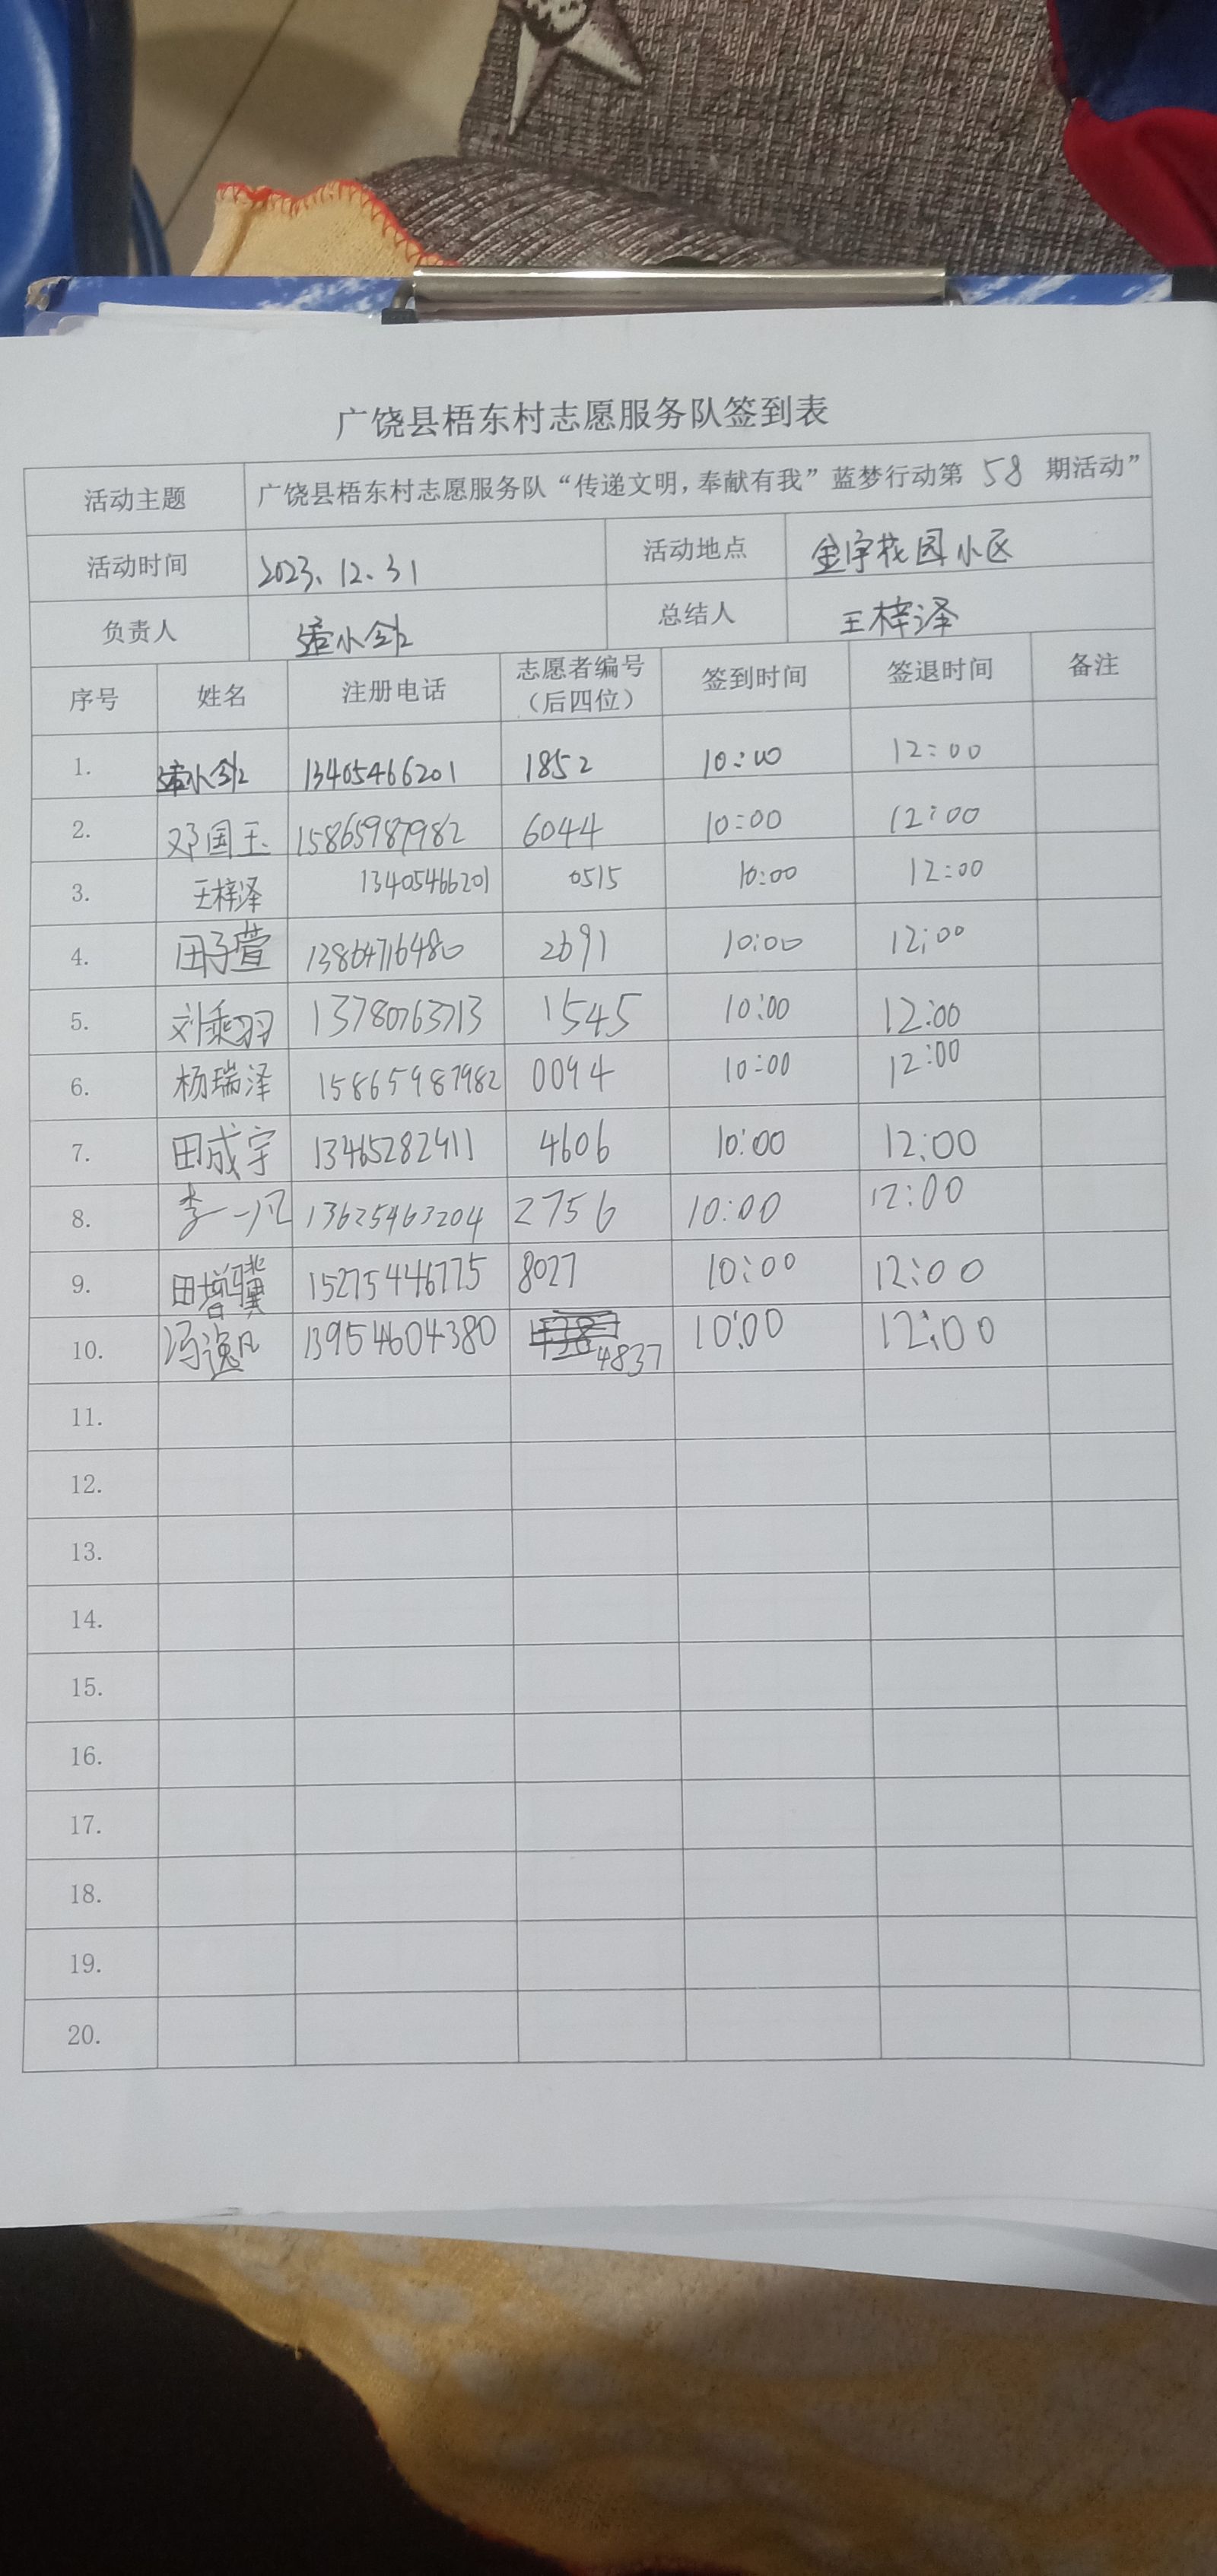 广饶县梧东村志愿服务队签到表
活动主题 广饶县梧东村志愿服务队“传递文明，奉献有我”蓝梦行动第 58 期活动”
活动时间 2023.12.31 活动地点 金宇花园小区
负责人 总结人 王梓泽
序号 姓名 注册电话 志愿者编号（后四位） 签到时间 签退时间 备注
1. 13405466201 1852 10:00 12:00
2. 邓国玉 15865987982 6044 10:00 12:00
3. 王梓泽 13405466201 0515 10:00 12:00
4. 田子萱 13864716480 2691 10:00 12:00
5. 刘乘羽 13780763713 1545 10:00 12:00
6. 杨瑞泽 15865987982 0094 10:00 12:00
7. 田成宇 13465282411 4606 10:00 12:00
8. 李一凡 13625463204 2756 10:00 12:00
9. 田增骥 15275446775 8027 10:00 12:00
10. 冯逸凡 13954604380 4837 10:00 12:00
11.
12.
13.
14.
15.
16.
17.
18.
19.
20.